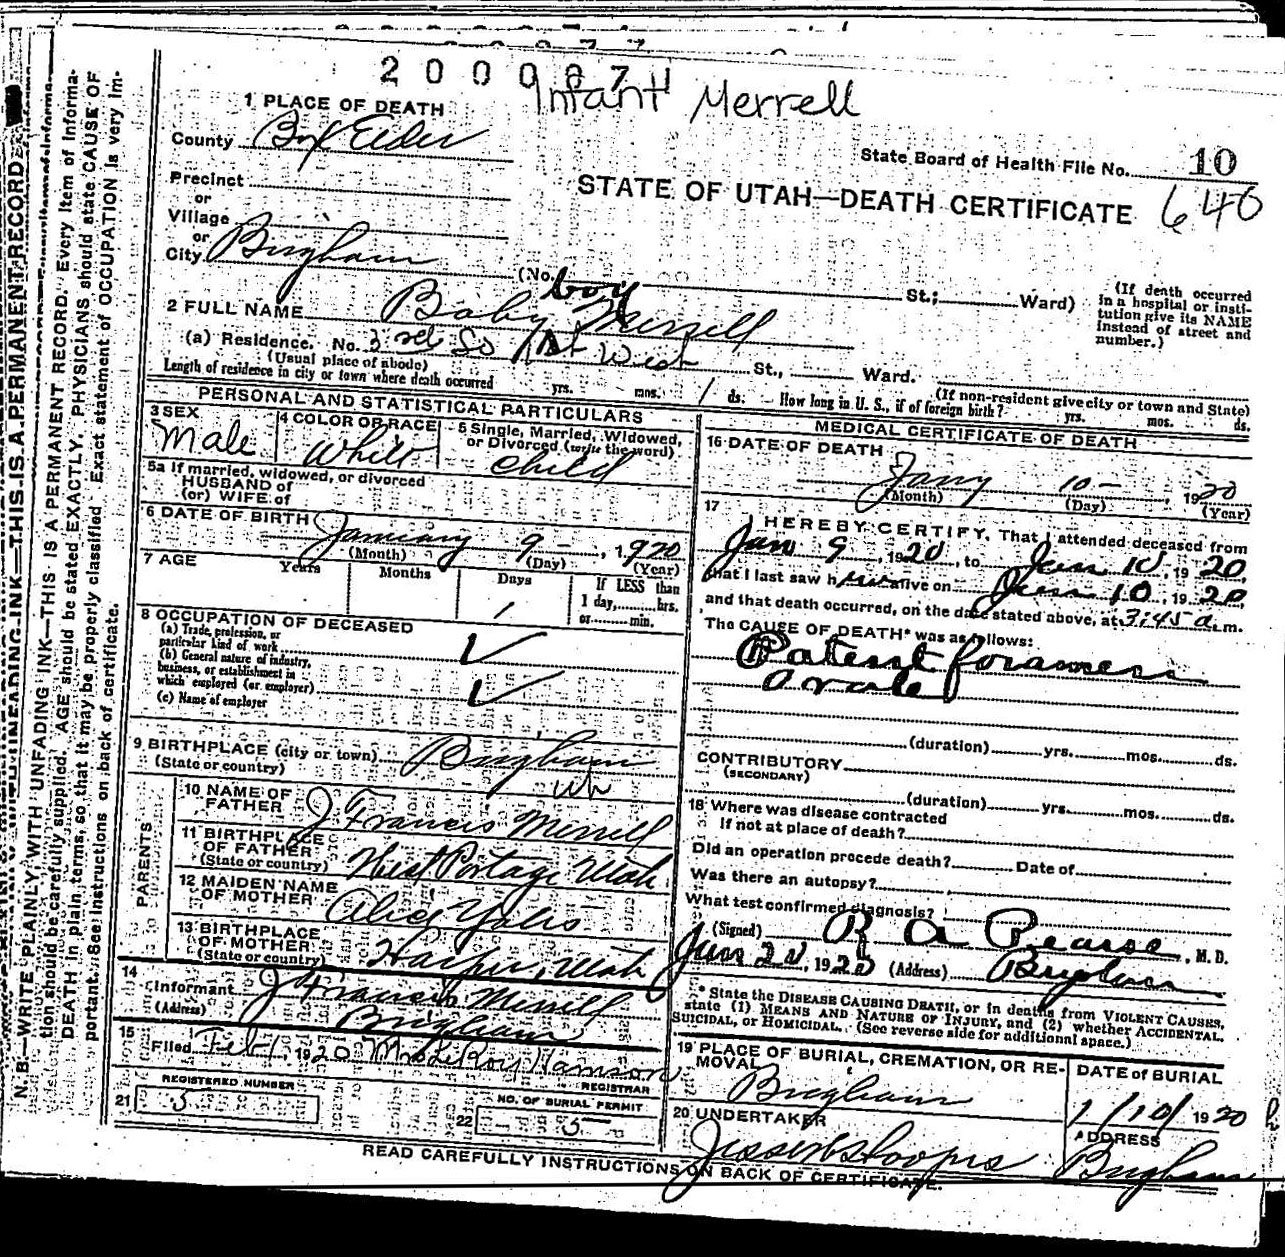 2 0 0 0 8 7
Infant Merrell
1 PLACE OF DEATH
County Box Elder
State Board of Health File No. 10
Precinct
or
STATE OF UTAH—DEATH CERTIFICATE 640
Village
or
City Brigham
(No. St.; Ward)
(If death occurred in a hospital or institution give its NAME instead of street and number.)
boy
2 FULL NAME Baby Merrell
(a) Residence. No. 3rd So 1st West St., Ward.
(Usual place of abode)
(If non-resident give city or town and State)
Length of residence in city or town where death occurred yrs. mos. 1 ds. How long in U. S., if of foreign birth? yrs. mos. ds.
PERSONAL AND STATISTICAL PARTICULARS
3 SEX
Male
4 COLOR OR RACE
White
5 Single, Married, Widowed, or Divorced (write the word)
child
5a If married, widowed, or divorced
HUSBAND of
(or) WIFE of
6 DATE OF BIRTH January 9 - , 1920
(Month) (Day) (Year)
7 AGE Years Months Days If LESS than
1 day, hrs.
or min.
1
8 OCCUPATION OF DECEASED
(a) Trade, profession, or
particular kind of work
(b) General nature of industry,
business, or establishment in
which employed (or employer)
(c) Name of employer
9 BIRTHPLACE (city or town) Brigham
(State or country)
PARENTS
10 NAME OF
FATHER J Francis Merrell
11 BIRTHPLACE
OF FATHER
(State or country) West Portage Utah
12 MAIDEN NAME
OF MOTHER Alice Yates
13 BIRTHPLACE
OF MOTHER
(State or country) Harper, Utah
14
Informant J Francis Merrell
(Address) Brigham
15
Filed Feb 1, 1920 Mrs LeRoy Hamson
REGISTRAR
REGISTERED NUMBER
21 5
NO. OF BURIAL PERMIT
22 5
MEDICAL CERTIFICATE OF DEATH
16 DATE OF DEATH
Jany 10 - , 1920
(Month) (Day) (Year)
17
I HEREBY CERTIFY, That I attended deceased from
Jan 9, 1920, to Jan 10, 1920
that I last saw h alive on Jan 10, 1920
and that death occurred, on the date stated above, at 3:45 a. m.
The CAUSE OF DEATH* was as follows:
Patent foramen
ovale
(duration) yrs. mos. ds.
CONTRIBUTORY
(SECONDARY)
(duration) yrs. mos. ds.
18 Where was disease contracted
if not at place of death?
Did an operation precede death? Date of
Was there an autopsy?
What test confirmed diagnosis?
(Signed) R A Pearse, M. D.
Jan 20, 1920 (Address) Brigham
* State the DISEASE CAUSING DEATH, or in deaths from VIOLENT CAUSES,
state (1) MEANS AND NATURE OF INJURY, and (2) whether ACCIDENTAL,
SUICIDAL, or HOMICIDAL. (See reverse side for additional space.)
19 PLACE OF BURIAL, CREMATION, OR REMOVAL
Brigham
DATE of BURIAL
1/10/1920
20 UNDERTAKER
ADDRESS
Brigham
READ CAREFULLY INSTRUCTIONS ON BACK OF CERTIFICATE.
N. B.—WRITE PLAINLY, WITH UNFADING INK—THIS IS A PERMANENT RECORD. Every item of information should be carefully supplied. AGE should be stated EXACTLY. PHYSICIANS should state CAUSE OF
DEATH in plain terms, so that it may be properly classified. Exact statement of OCCUPATION is very important. See instructions on back of certificate.